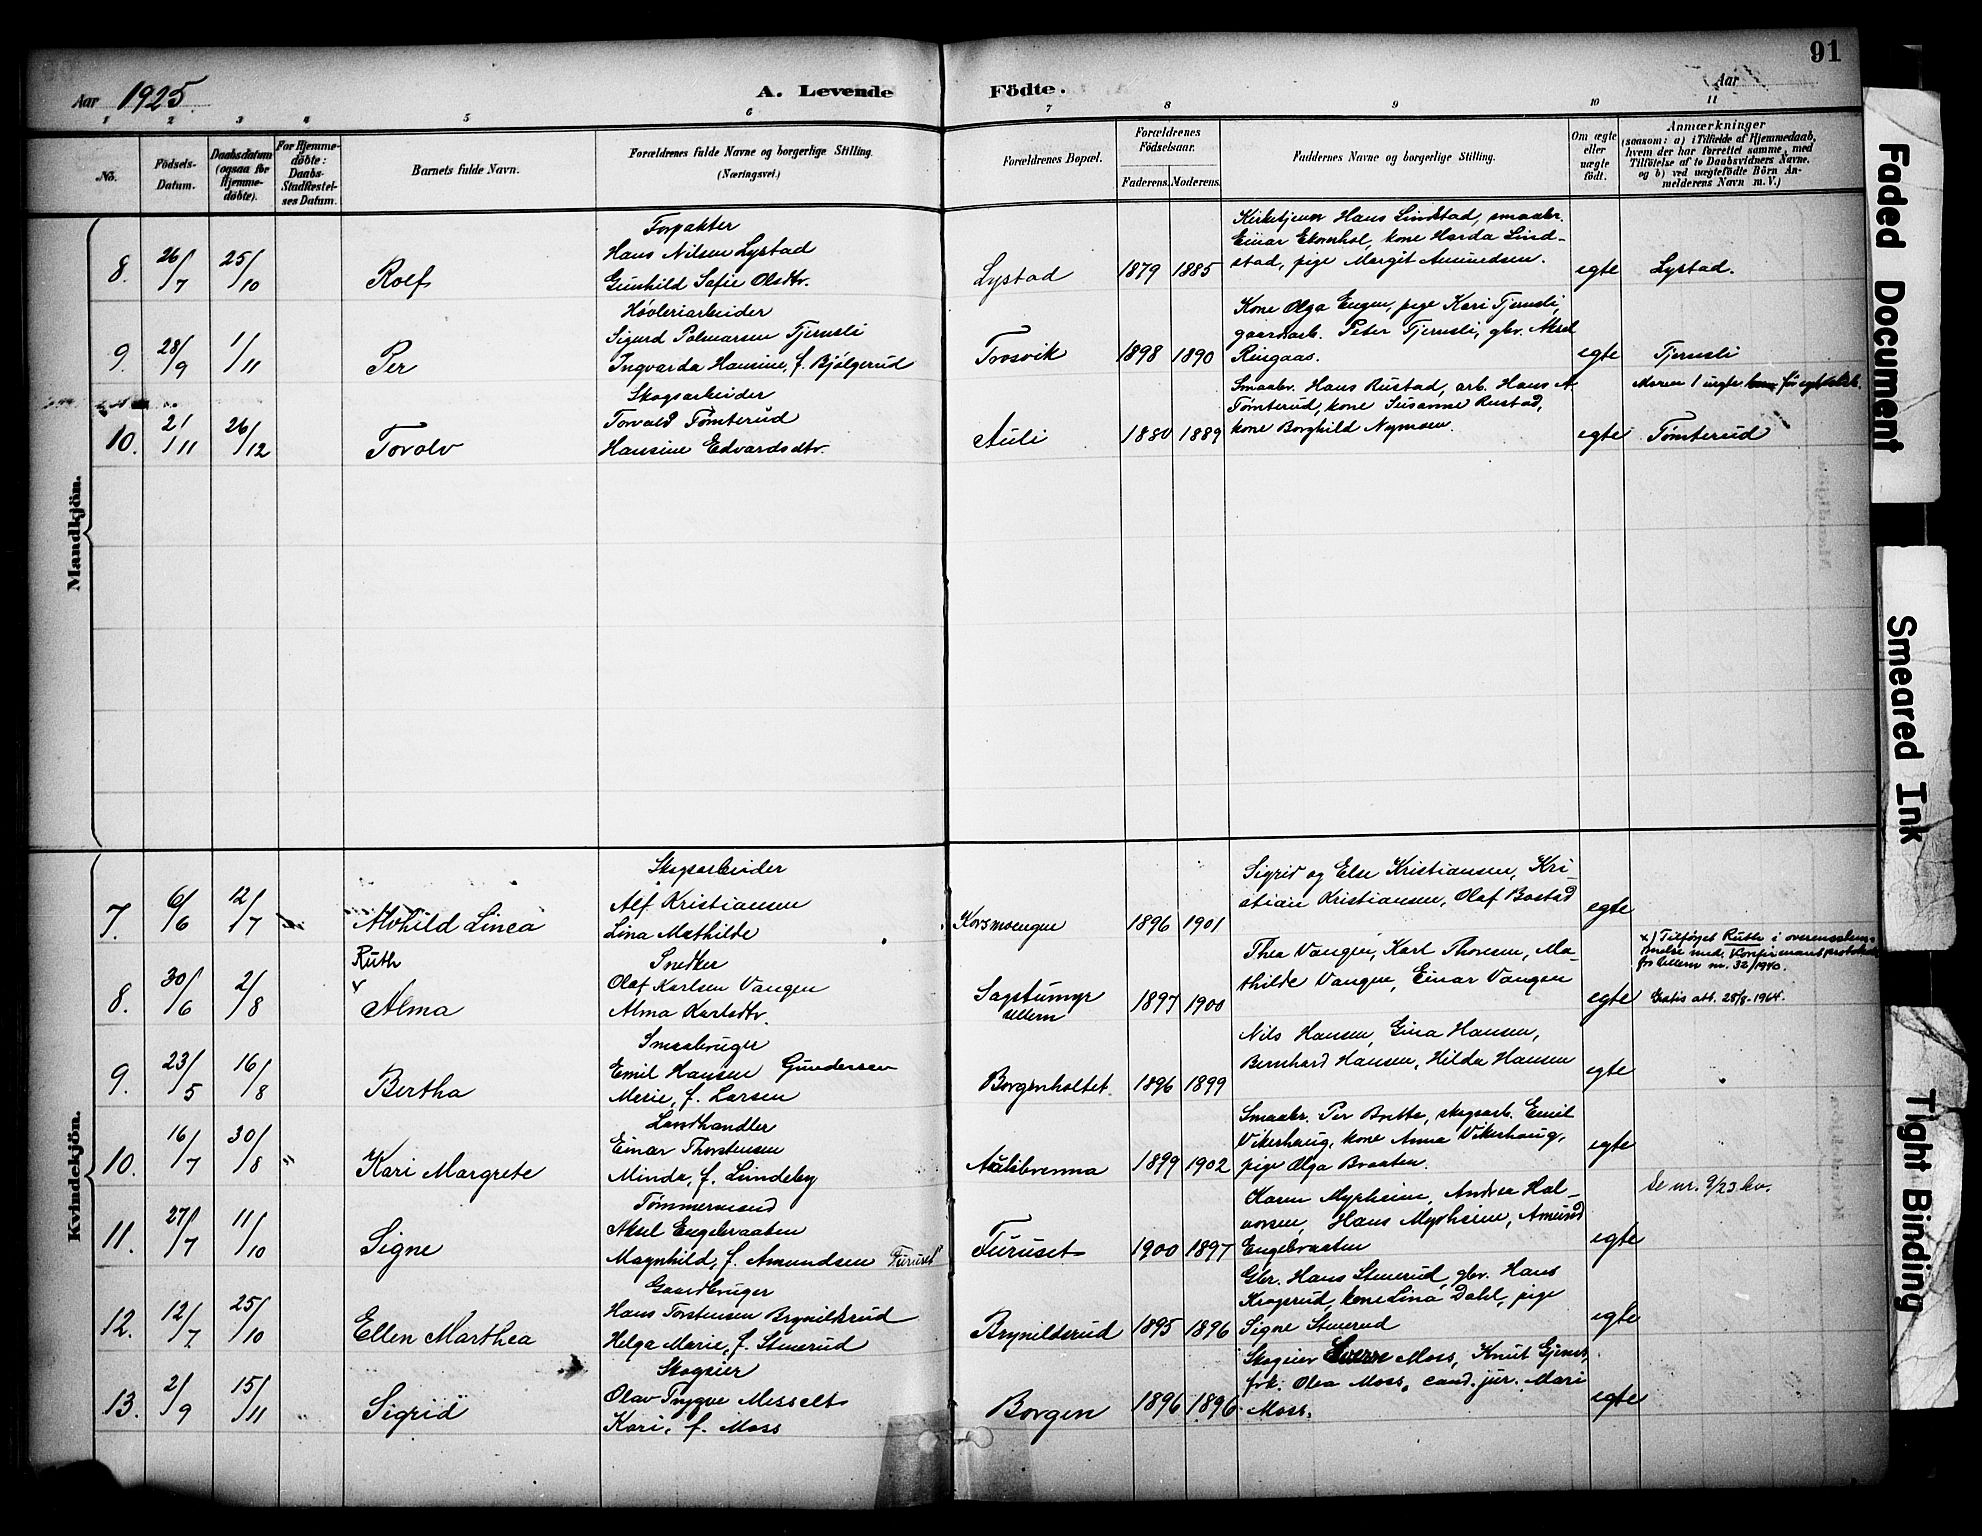 91
Aar 1925.
A. Levende Födte.
Aar
1 2 3 4 5 6 7 8 9 10 11
No.
Födsels-Datum.
Daabsdatum (ogsaa for Hjemme-döbte).
For Hjemme-döbte: Daabs-Stadfæstel-ses Datum.
Barnets fulde Navn.
Forældrenes fulde Navne og borgerlige Stilling.
(Næringsvei.)
Forældrenes Bopæl.
Forældrenes Födselsaar.
Faderens. Moderens.
Faddernes Navne og borgerlige Stilling.
Om ægte eller uægte födt.
Anmærkninger
(saasom: a) i Tilfælde af Hjemmedaab,
hvem der har forrettet samme, med
Tilföielse af to Daabsvidners Navne.
og b) ved uægtefödte Börn An-
melderens Navn m. V.)
Mandkjön.
8. 26/7 25/10 Rolf
Forpakter
Hans Nilsen Lystad
Gunhild Sofie Olsdtr.
Lystad 1879 1885
Kirketjener Hans Lindstad, smaabr.
Einar Ekornhol, kone Harda Lind-
stad, pige Margit Amundsen.
egte Lystad.
9. 28/9 1/11 Per
Høvleriarbeider
Sigurd Palmarsen Tjernsli
Ingvarda Hansine, f. Bjølgerud
Torsvik 1898 1890
Kone Olga Engen, pige Kari Tjernsli,
gaardarb. Peter Tjernsli, gbr. Aksel
Ringaas.
egte Tjernsli
Moren 1 uegte
10. 2/11 26/12 Torolv
Skogsarbeider
Torvald Tømterud
Hansine Edvardsdtr.
Auli 1880 1889
Smaabr. Hans Rustad, arb. Hans A
Tømterud, kone Susanne Rustad,
kone Borghild Nymoen.
egte Tømterud
Kvindekjön.
7. 6/6 12/7 Alvhild Linea
Skogsarbeider
Alf Kristiansen
Lina Mathilde
Korsmoengen 1896 1901
Sigrid og Else Kristiansen, Kri-
stian Kristiansen, Olaf Bostad
egte
8. 30/6 2/8
Ruth
Alma
Snedker
Olaf Karlsen Vangen
Alma Karlsdtr.
Sagstumyr
Ullern
1897 1900
Thea Vangen, Karl Thoresen, Ma-
thilde Vangen, Einar Vangen
egte
x) Tilføyet Ruth i overensstem-
melse med Konfirmantprotokoll
for Ullern nr. 32/1940.
Gratis att. 28/8-1964.
9. 23/5 16/8 Bertha
Smaabruger
Emil Hansen Gundersen
Merie, f. Larsen
Borgenholtet. 1896 1899
Nils Hansen, Gina Hansen,
Bernhard Hansen, Hilda Hansen
egte
10. 16/7 30/8 Kari Margrete
Landhandler
Einar Thorstensen
Minda, f. Lundeby
Aulibrenna 1899 1902
Smaabr. Per Bratte, skogsarb. Emil
Vikerhaug, kone Anna Vikerhaug,
pige Olga Braaten.
egte
11. 27/7 11/10 Signe
Tømmermand
Aksel Engebraaten
Magnhild, f. Amundsen Furuset
Furuset 1900 1897
Karen Myrheim, Andrea Hal-
vorsen, Hans Myrheim, Amund
Engebraaten
egte
Se nr. 9/23 kv.
12. 12/7 25/10 Ellen Marthea
Gaardbruger
Hans Torstensen Brynildsrud
Helga Marie, f. Stenerud
Brynildsrud 1895 1896
Gbr. Hans Stenerud, gbr. Hans
Krogsrud, kone Lina Dahl, pige
Signe Stenerud
egte
13. 2/9 15/11 Sigrid
Skogeier
Olav Trygve Messelt
Kari, f. Moss
Borgen 1896 1896
Skogeier Sverre Moss, Knut Gjems,
frk. Olea Moss, cand. jur. Mari
Moss.
egte
Faded Document
Smeared Ink
Tight Binding